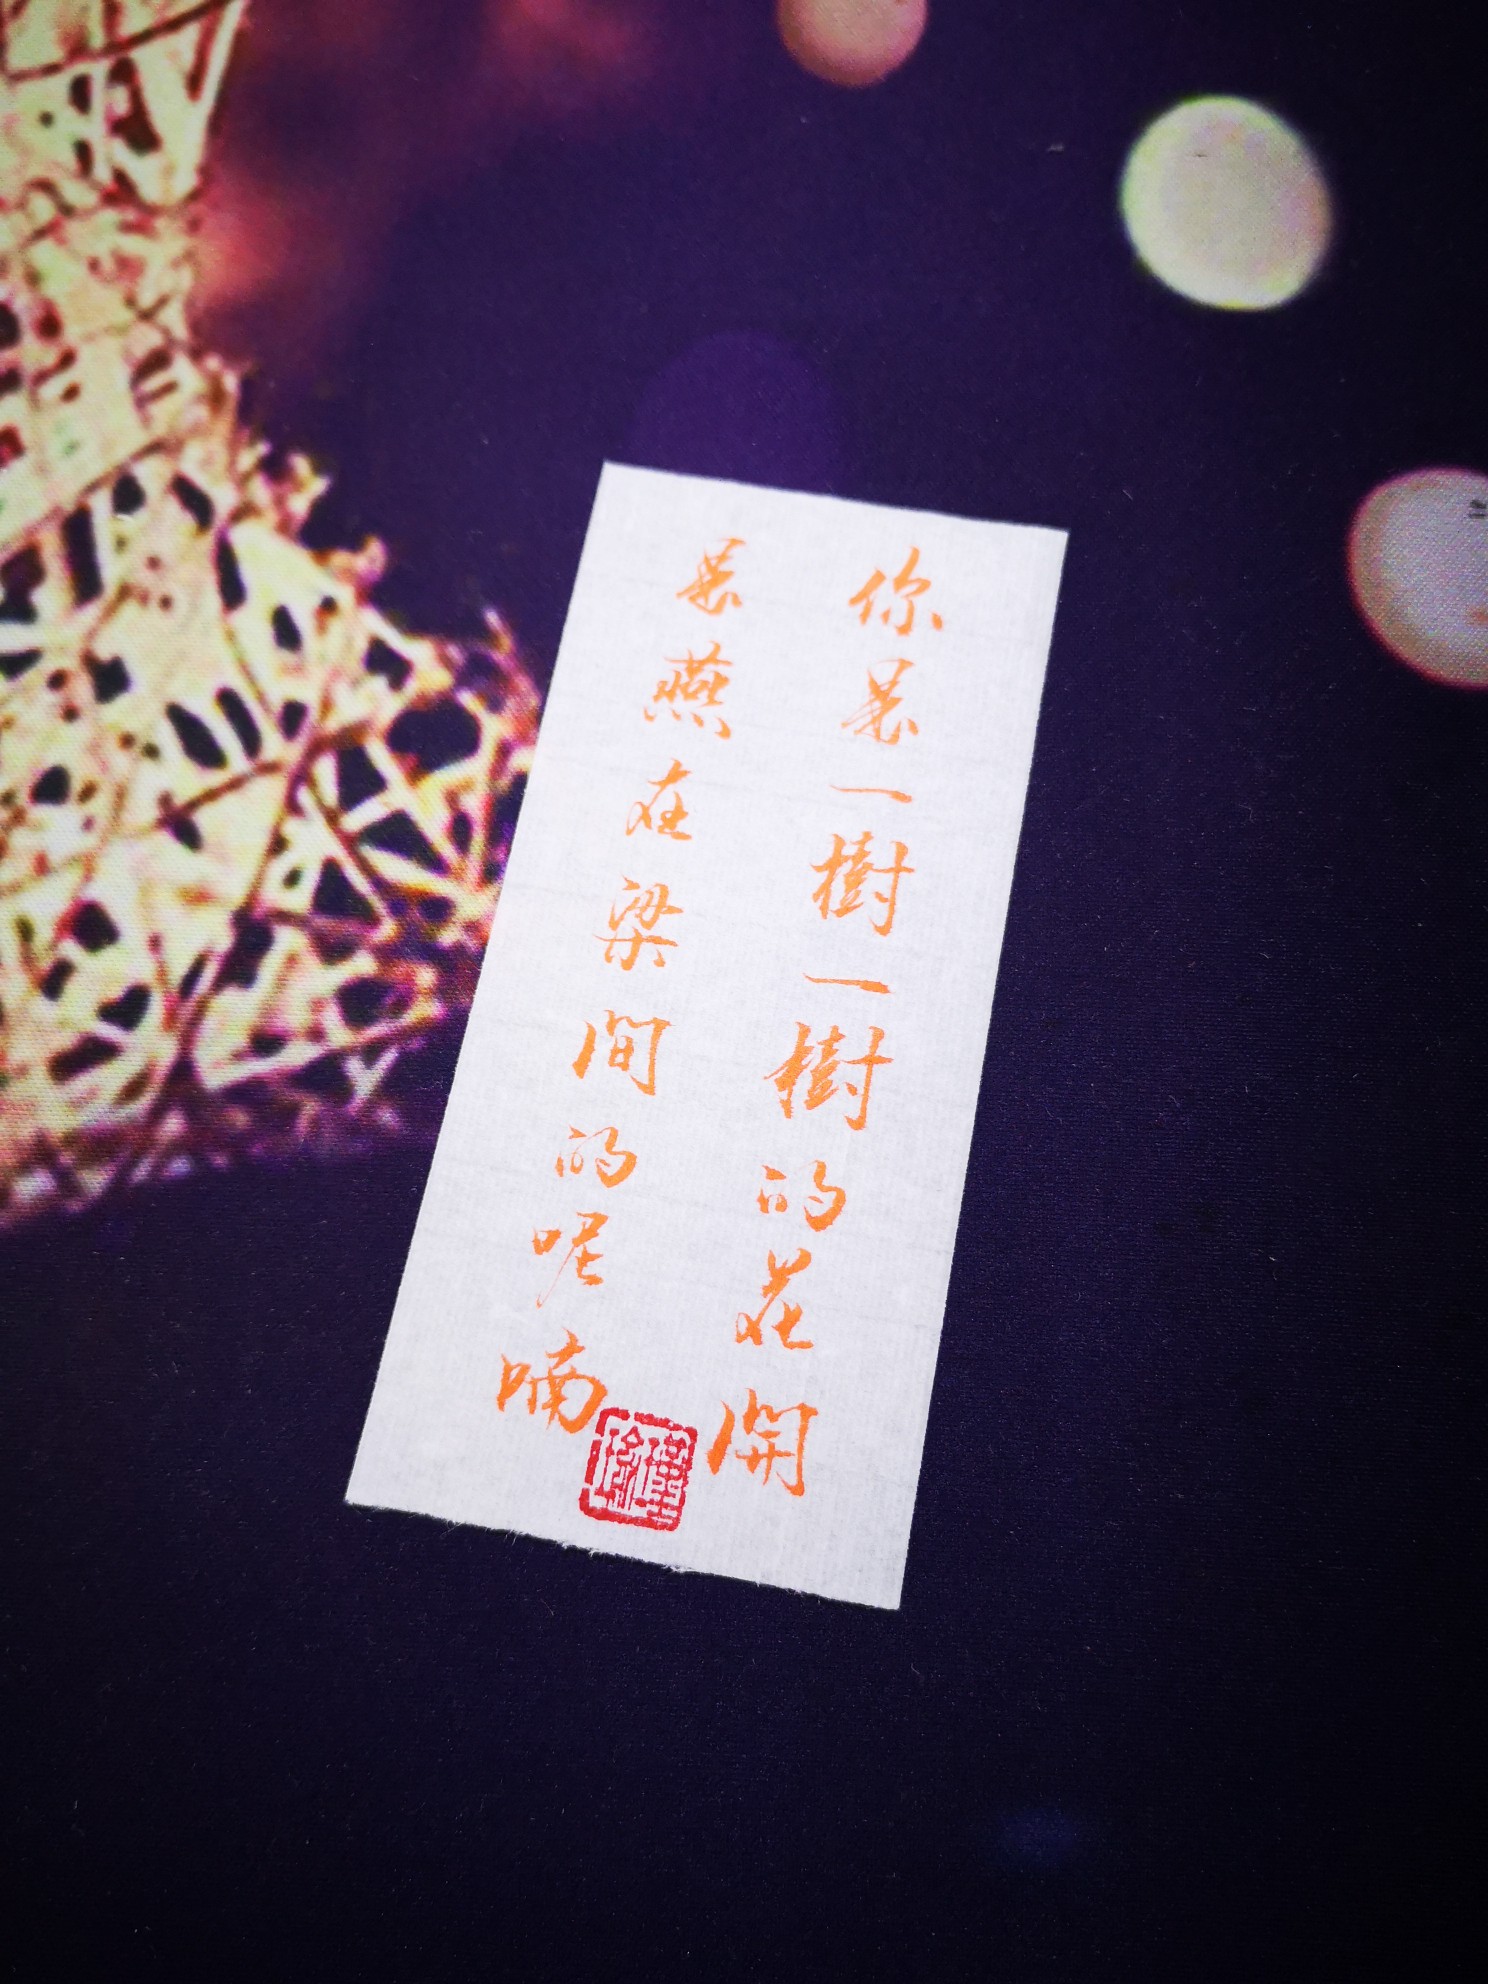 你是一樹一樹的花開
是燕在梁間的呢喃